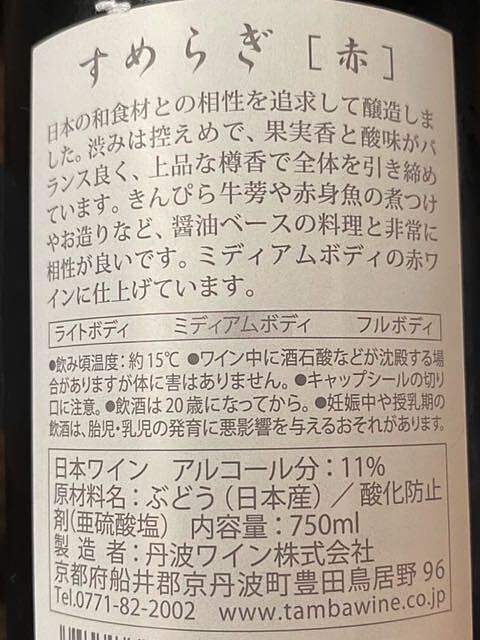 すめらぎ［赤］
日本の和食材との相性を追求して醸造しま
した。渋みは控えめで、果実香と酸味がバ
ランス良く、上品な樽香で全体を引き締め
ています。きんぴら牛蒡や赤身魚の煮つけ
やお造りなど、醤油ベースの料理と非常に
相性が良いです。ミディアムボディの赤ワ
インに仕上げています。
ライトボディ ミディアムボディ フルボディ
●飲み頃温度：約15℃ ●ワイン中に酒石酸などが沈殿する場
合がありますが体に害はありません。●キャップシールの切り
口に注意。●飲酒は20歳になってから。●妊娠中や授乳期の
飲酒は、胎児・乳児の発育に悪影響を与えるおそれがあります。
日本ワイン アルコール分：11%
原材料名：ぶどう（日本産）／酸化防止
剤（亜硫酸塩） 内容量：750ml
製造者：丹波ワイン株式会社
京都府船井郡京丹波町豊田鳥居野96
Tel.0771-82-2002 www.tambawine.co.jp